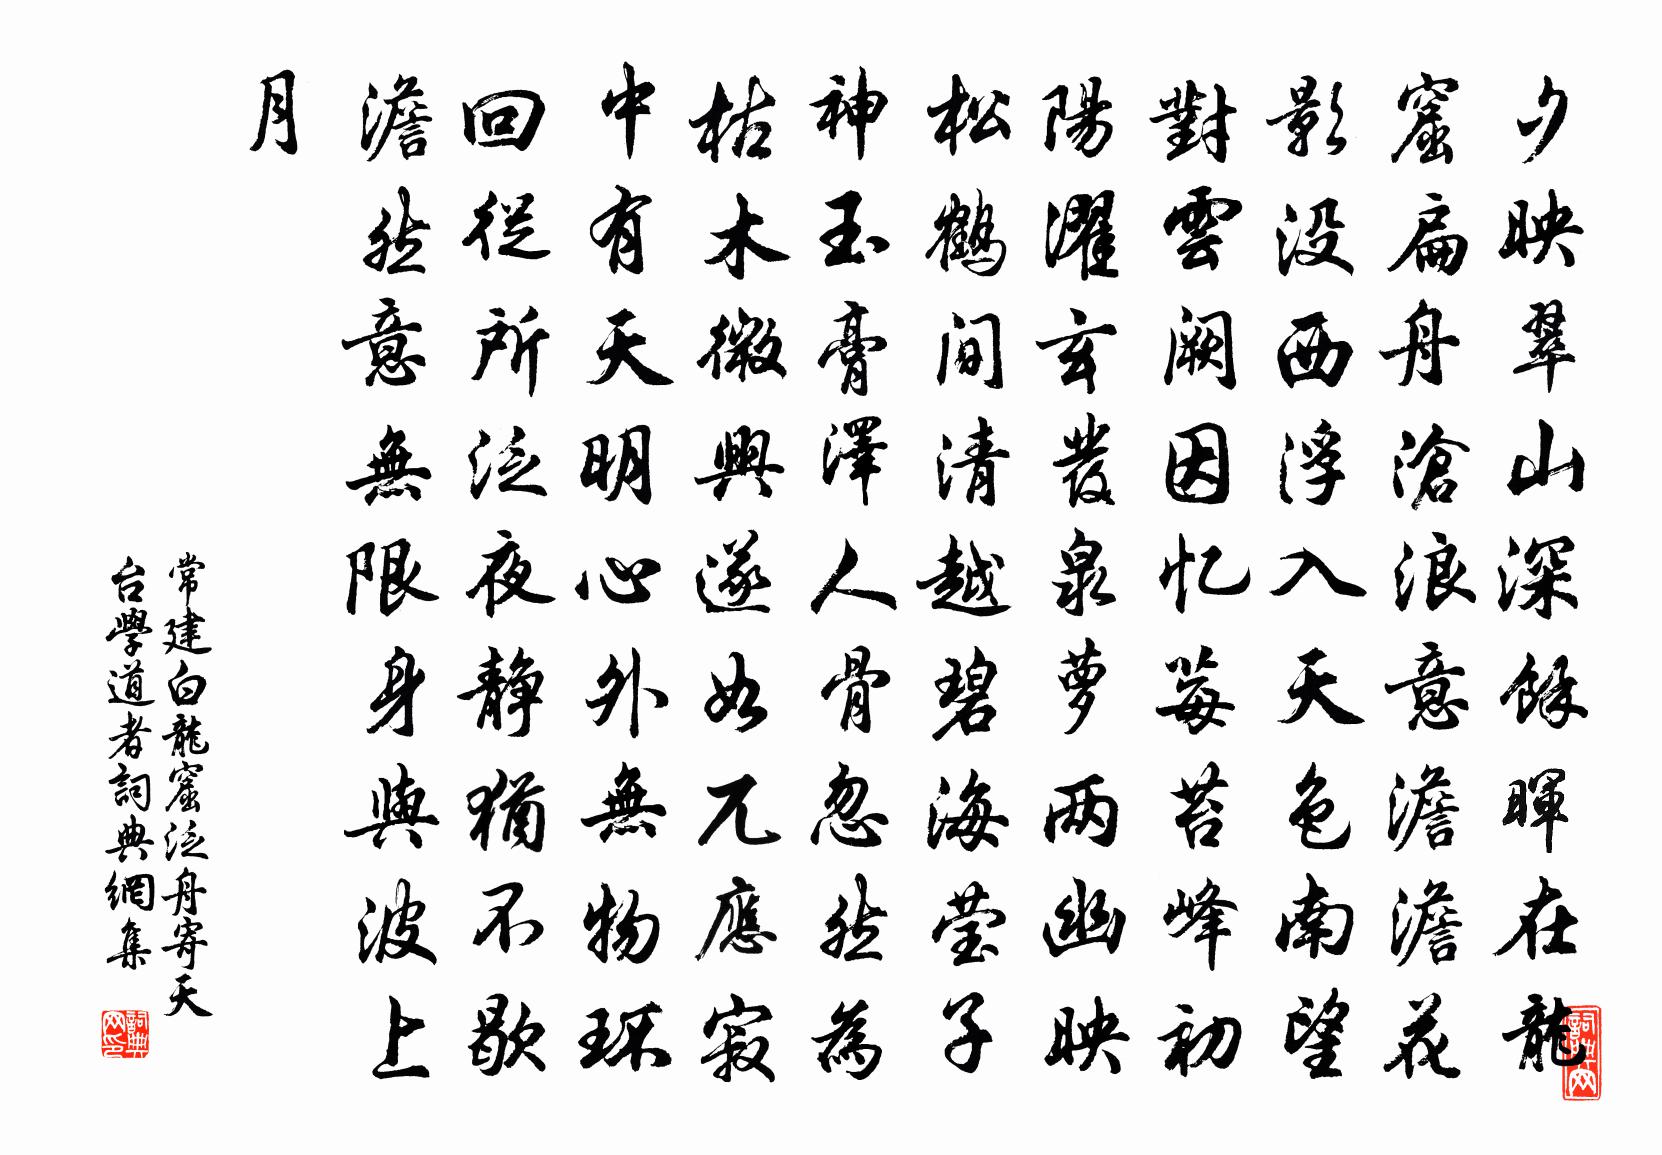 夕映翠山深餘暉在龍
窟扁舟滄浪意澹澹花
影没西浮入天色南望
對雲闕因忆莓苔峰初
陽濯玄發泉萝两幽映
松鶴間清越碧海莹子
神玉膏澤人骨忽然為
枯木微興遂如兀應寂
中有天明心外無物环
回從所泛夜静猶不歇
澹然意無限身與波上
月
常建白龍窟泛舟寄天
台學道者詞典網集
詞典网
詞典网印